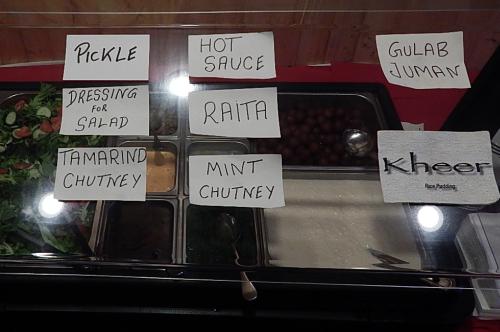 PICKLE
HOT
SAUCE
GULAB
JUMAN
DRESSING
FOR
SALAD
RAITA
TAMARIND
CHUTNEY
MINT
CHUTNEY
Kheer
Rice Pudding